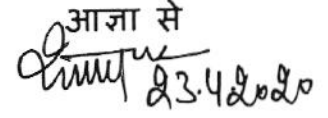 आज्ञा से
23.4.2020